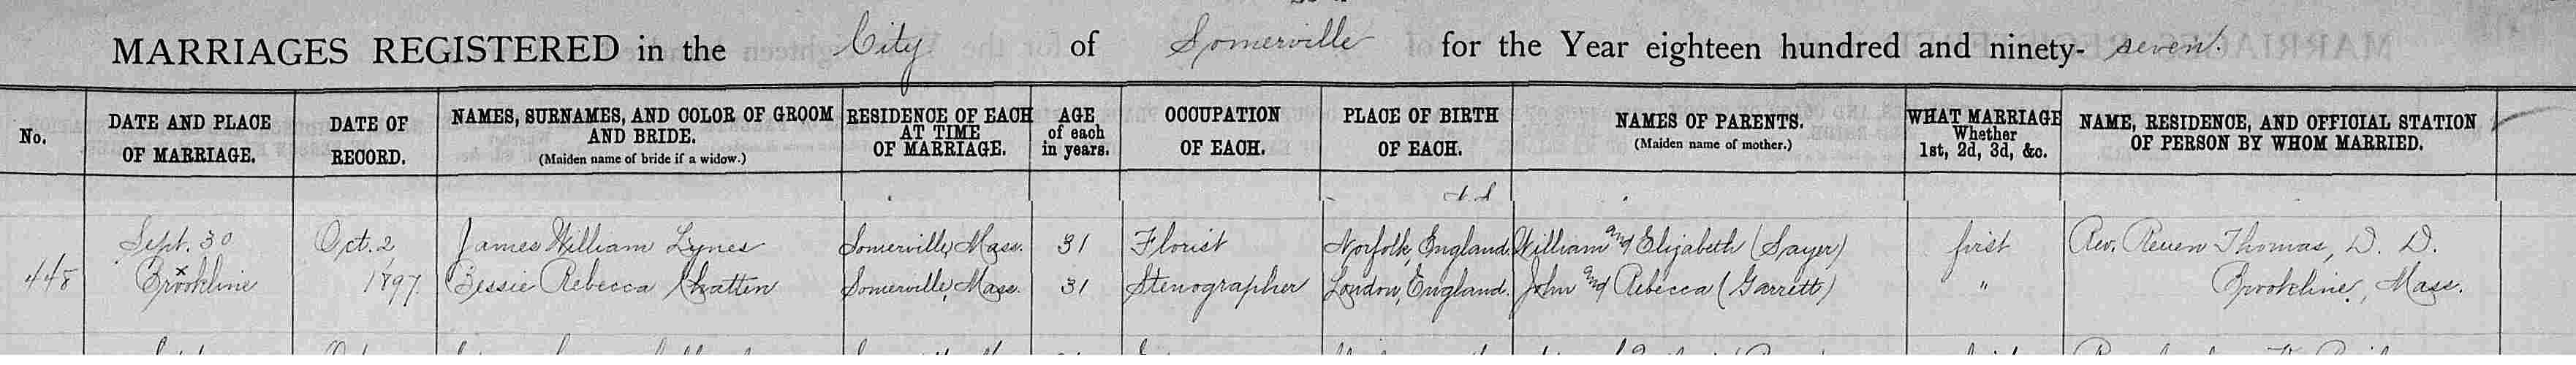 MARRIAGES REGISTERED in the City of Somerville for the Year eighteen hundred and ninety- seven.
No.
DATE AND PLACE
OF MARRIAGE.
DATE OF
RECORD.
NAMES, SURNAMES, AND COLOR OF GROOM
AND BRIDE.
(Maiden name of bride if a widow.)
RESIDENCE OF EACH
AT TIME
OF MARRIAGE.
AGE
of each
in years.
OCCUPATION
OF EACH.
PLACE OF BIRTH
OF EACH.
NAMES OF PARENTS.
(Maiden name of mother.)
WHAT MARRIAGE
Whether
1st, 2d, 3d, &c.
NAME, RESIDENCE, AND OFFICIAL STATION
OF PERSON BY WHOM MARRIED.
Sept. 30 Oct. 2 James William Lynes Somerville, Mass. 31 Florist Norfolk, England. William and Elizabeth (Sayer) first Rev. Reuen Thomas, D. D.
448 Brookline 1897 Bessie Rebecca Chatten Somerville, Mass. 31 Stenographer London, England. John and Rebecca (Garrett) " Brookline, Mass.